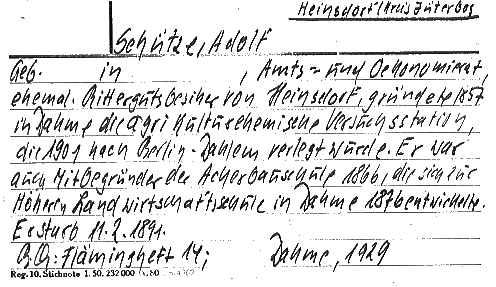 Heinsdorf/Kreis Jüterbog
Schütze, Adolf
Geb. in , Amts= und Oekonomierat,
ehemal. Rittergutsbesitzer von Heinsdorf, gründete 1857
in Dahme die agrikulturchemische Versuchsstation,
die 1901 nach Berlin-Dahlem verlegt wurde. Er war
auch Mitbegründer der Ackerbauschule 1866, die sich zur
Höheren Landwirtschaftsschule in Dahme 1876 entwickelte.
Er starb 11.2.1891.
Flämingheft 14; Dahme, 1929
Reg. 10. Stichnote 1. 50. 232 000